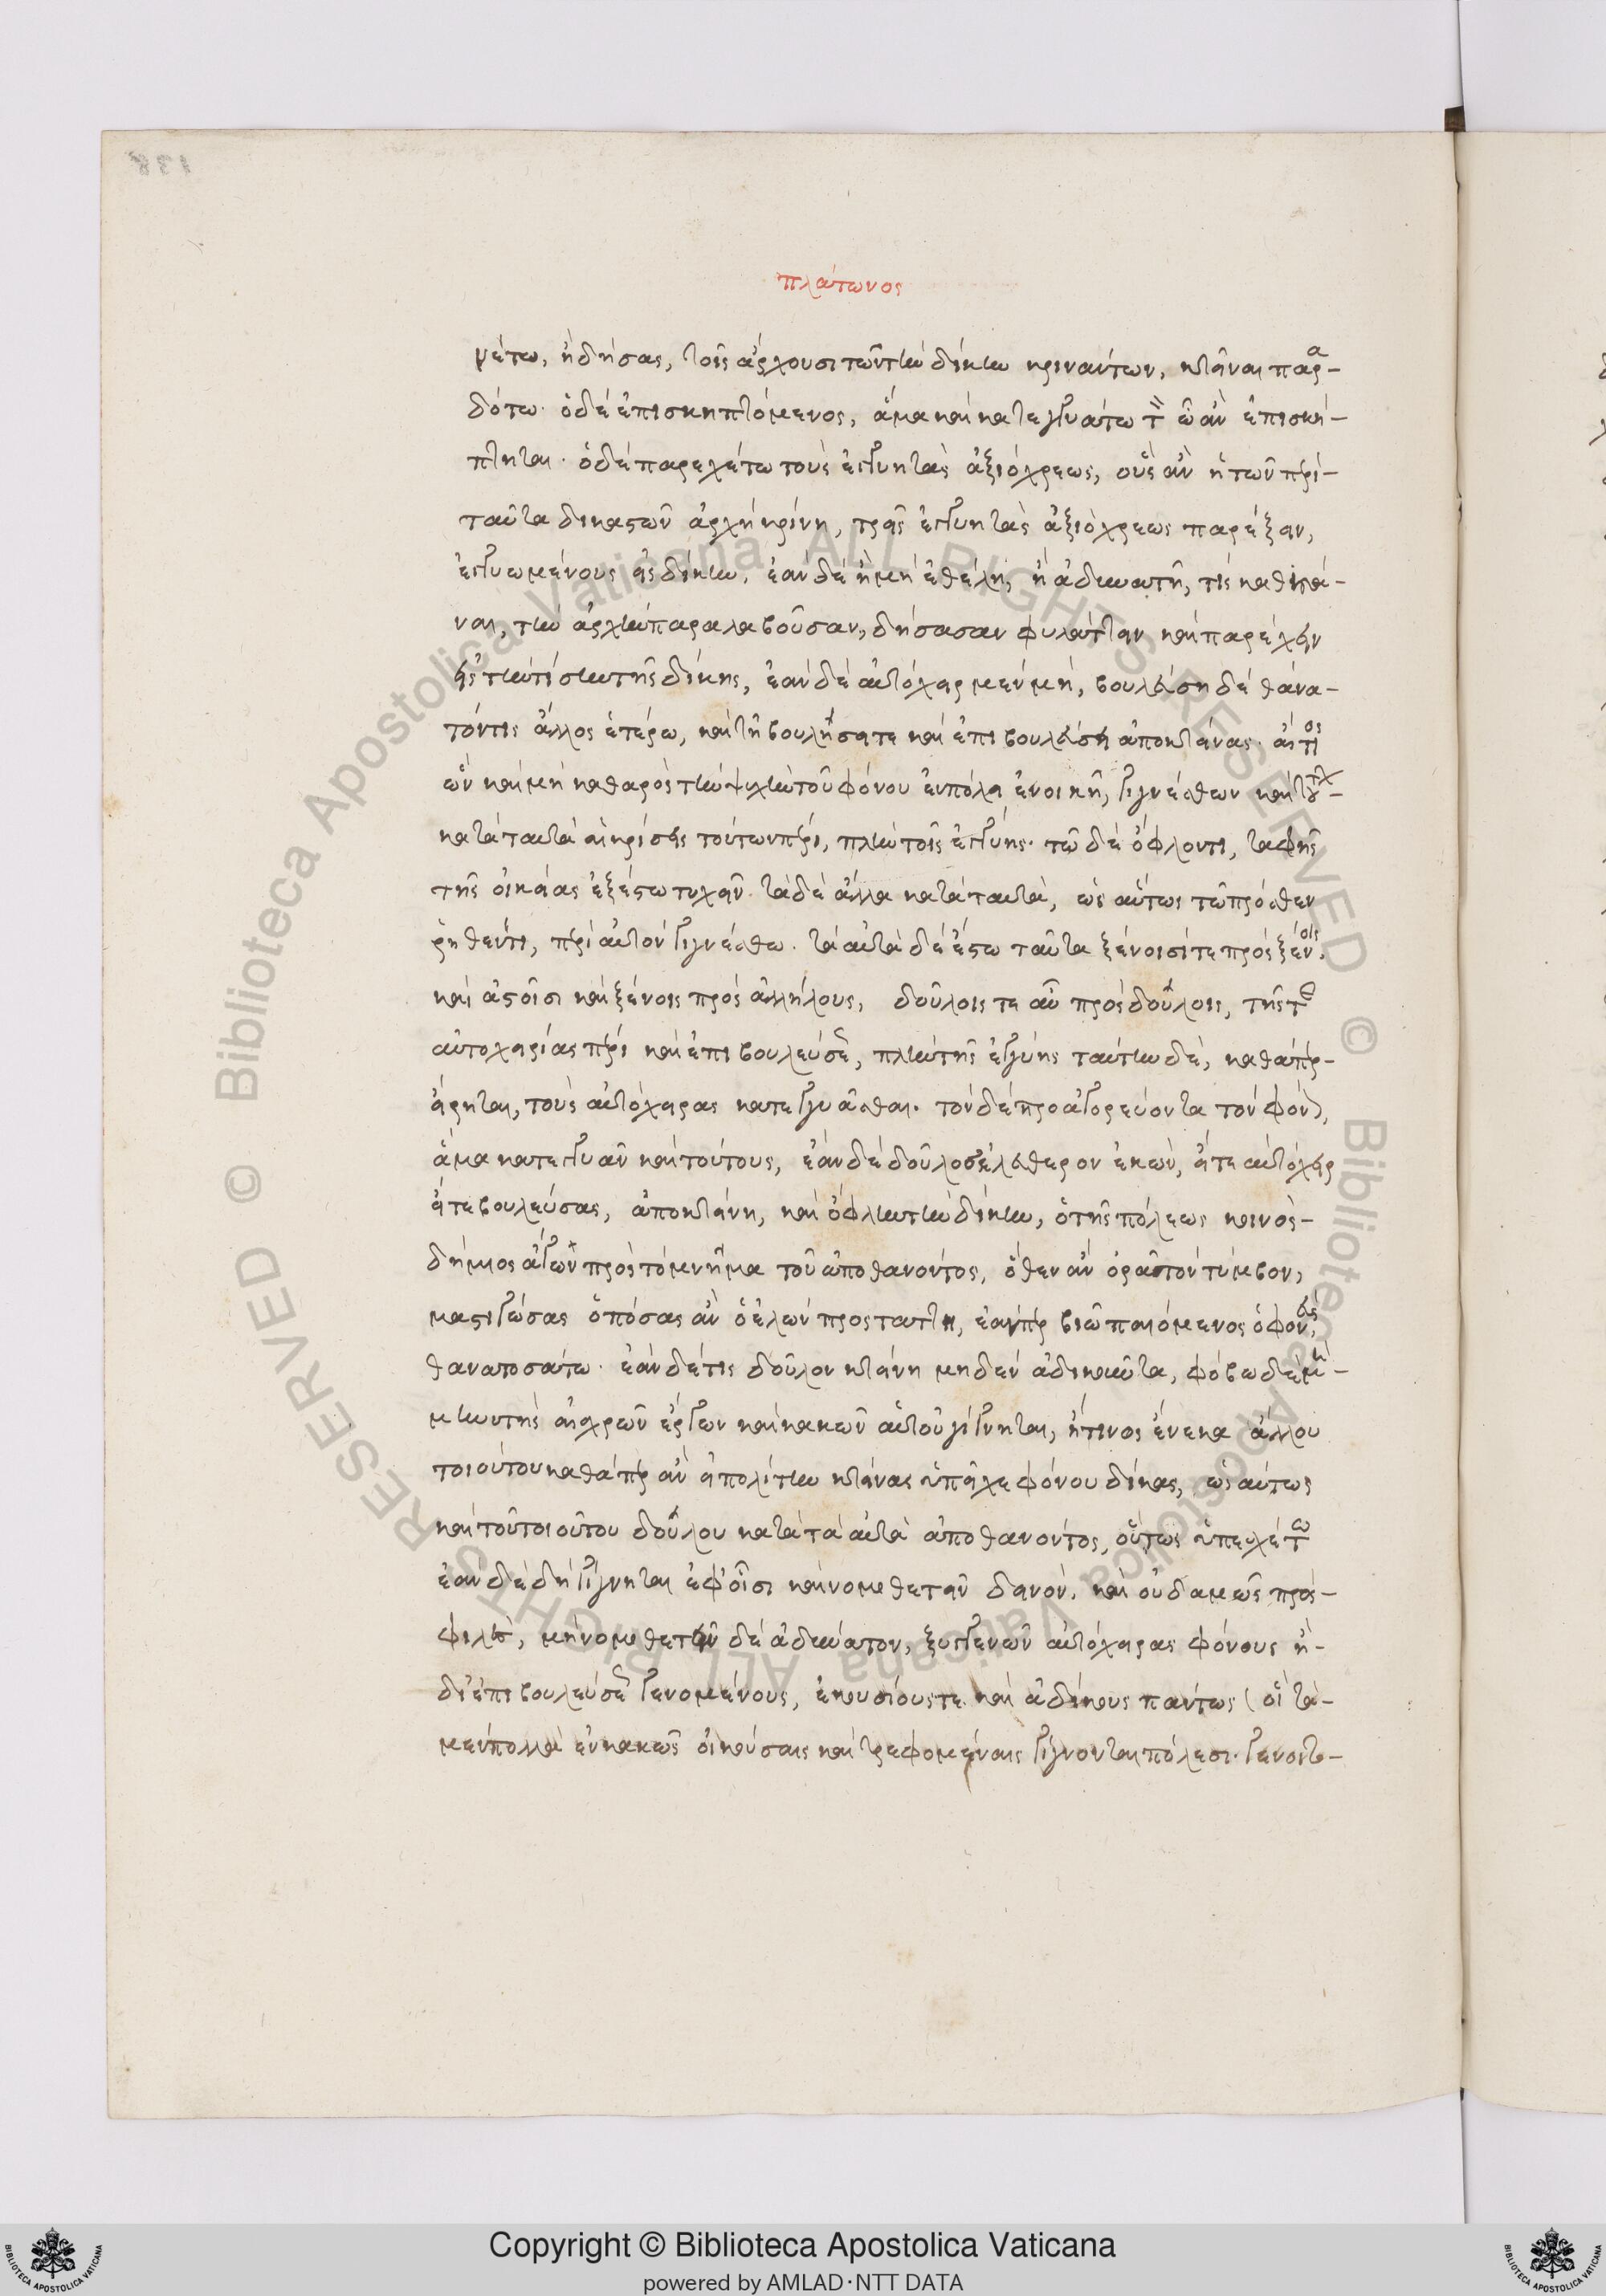 138
πλάτωνος
νέτω, ἢ δήσας, τοῖς ἄρχουσι τῶν τὴν δίκην κρινάντων, κτεῖναι παρα-
δότω. ὁ δὲ ἐπισκηπτόμενος, ἅμα καὶ κατεγγυάτω τὸν ᾧ ἂν ἐπισκή-
πτηται. ὁ δὲ παρεχέτω τοὺς ἐγγυητὰς ἀξιόχρεως, οὓς ἂν ἡ τῶν περὶ-
ταῦτα δικαστῶν ἀρχὴ κρίνῃ, τρεῖς ἐγγυητὰς ἀξιόχρεως παρέξειν,
ἐγγυωμένους εἰς δίκην. ἐὰν δὲ ἢ μὴ ἐθέλῃ, ἢ ἀδυνατῇ, τις καθιστά-
ναι, τὴν ἀρχὴν παραλαβοῦσαν, δήσασαν φυλάττειν καὶ παρέχειν
εἰς τὴν τίσιν τῆς δίκης, ἐὰν δὲ αὐτόχειρ μὲν μὴ, βουλεύσῃ δὲ θάνα-
τόν τις ἄλλος ἑτέρῳ, καὶ τῇ βουλήσει τε καὶ ἐπιβουλεύσει ἀποκτείνας. αἴτιος
ὢν καὶ μὴ καθαρὸς τὴν ψυχὴν τοῦ φόνου ἐν πόλει ἐνοικῇ, γιγνέσθων καὶ τούτῳ-
κατὰ ταυτὰ αἱ κρίσεις τούτων πέρι, πλὴν τοῖς ἐγγύης. τῷ δὲ ὀφλόντι, ταφῆς
τῆς οἰκείας ἐξέστω τυχεῖν. τὰ δὲ ἄλλα κατὰ ταυτὰ, ὡσαύτως τῷ πρόσθεν
ῥηθέντι, περὶ αὐτὸν γιγνέσθω. τὰ αὐτὰ δὲ ἔστω ταῦτα ξένοισί τε πρὸς ξένοις.
καὶ ἀστοῖσι καὶ ξένοις πρὸς ἀλλήλους, δούλοις τε αὖ πρὸς δούλοις, τῆς τε
αὐτοχειρίας πέρι καὶ ἐπιβουλεύσεως, πλὴν τῆς ἐγγύης ταύτην δὲ, καθάπερ-
εἴρηται, τοὺς αὐτόχειρας κατεγγυᾶσθαι. τὸν δὲ προαγορεύοντα τὸν φόνον,
ἅμα κατεγγυᾶν καὶ τούτους, ἐὰν δὲ δοῦλος ἐλεύθερον ἑκὼν, εἴτε αὐτόχειρ
εἴτε βουλεύσας, ἀποκτείνῃ, καὶ ὄφλῃ τὴν δίκην, ὁ τῆς πόλεως κοινὸς-
δήμιος ἄγων πρὸς τὸ μνῆμα τοῦ ἀποθανόντος, ὅθεν ἂν ὁρᾷ τὸν τύμβον,
μαστιγώσας ὁπόσας ἂν ὁ ἑλὼν προστάττῃ, ἐάνπερ βιῷ παιόμενος ὁ φονεύς,
θανατωσάτω. ἐὰν δέ τις δοῦλον κτείνῃ μηδὲν ἀδικοῦντα, φόβῳ δὲ μὴ-
μηνυτὴς αἰσχρῶν ἔργων καὶ κακῶν αὐτοῦ γίγνηται, ἤ τινος ἕνεκα ἄλλου
τοιούτου καθάπερ ἂν εἰ πολίτην κτείνας ὑπεῖχε φόνου δίκας, ὡσαύτως
καὶ τοῦ τοιούτου δούλου κατὰ τὰ αὐτὰ ἀποθανόντος, οὕτως ὑπεχέτω
ἐὰν δὲ δὴ γίγνηται ἐφ' οἷσι καὶ νομοθετεῖν δεινὸν. καὶ οὐδαμῶς προς-
φιλὲς, μὴ νομοθετεῖν δὲ ἀδύνατον, ξυγγενῶν αὐτόχειρας φόνους ἢ-
δι' ἐπιβουλεύσεως γενομένους, ἑκουσίους τε καὶ ἀδίκους πάντως (οἳ τὰ-
μὲν πολλὰ ἐν κακῶς οἰκούσαις καὶ τρεφομέναις γίγνονται πόλεσι. γένοιτο-